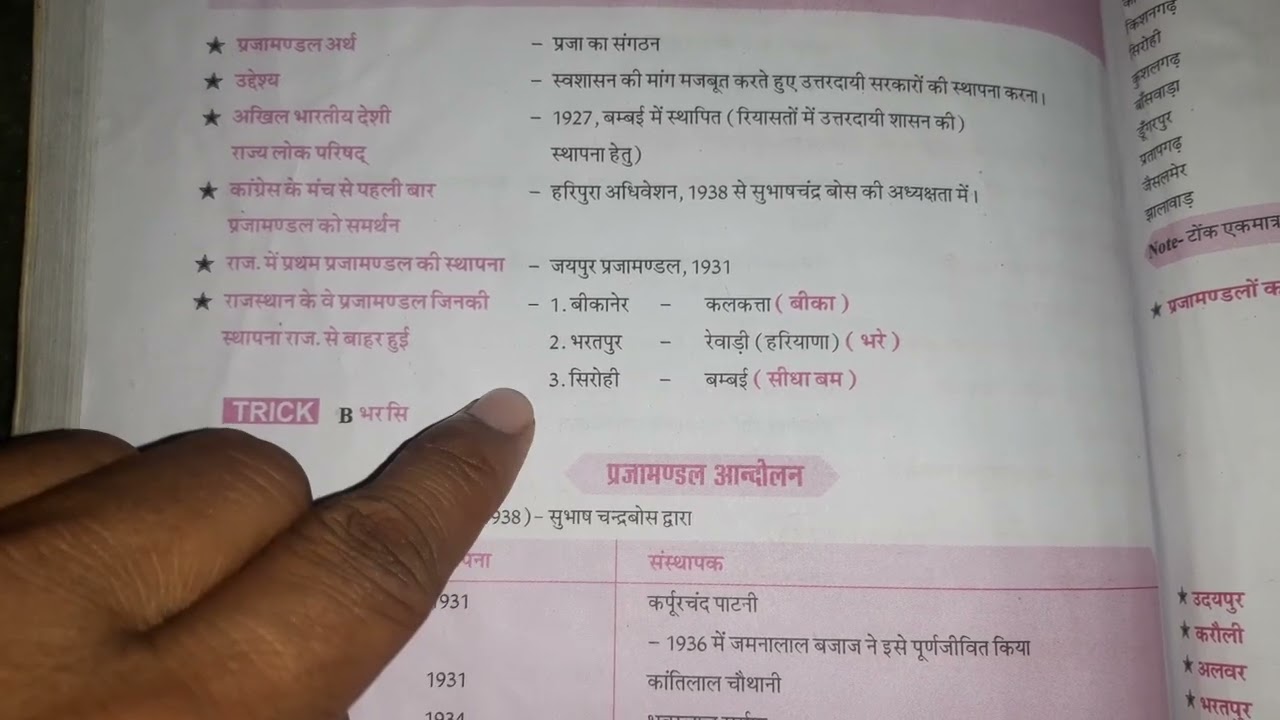 ★ प्रजामण्डल अर्थ – प्रजा का संगठन
★ उद्देश्य – स्वशासन की मांग मजबूत करते हुए उत्तरदायी सरकारों की स्थापना करना।
★ अखिल भारतीय देशी – 1927, बम्बई में स्थापित ( रियासतों में उत्तरदायी शासन की )
राज्य लोक परिषद् स्थापना हेतु )
★ कांग्रेस के मंच से पहली बार – हरिपुरा अधिवेशन, 1938 से सुभाषचंद्र बोस की अध्यक्षता में।
प्रजामण्डल को समर्थन
★ राज. में प्रथम प्रजामण्डल की स्थापना – जयपुर प्रजामण्डल, 1931
★ राजस्थान के वे प्रजामण्डल जिनकी – 1. बीकानेर – कलकत्ता ( बीका )
स्थापनां राज. से बाहर हुई 2. भरतपुर – रेवाड़ी ( हरियाणा ) ( भरे )
3. सिरोही – बम्बई ( सीधा बम )
TRICK B भर सि
प्रजामण्डल आन्दोलन
938 ) – सुभाष चन्द्रबोस द्वारा
पना संस्थापक
1931 कर्पूरचंद पाटनी
– 1936 में जमनालाल बजाज ने इसे पूर्णजीवित किया
1931 कांतिलाल चौथानी
1934
किशनगढ़
सिरोही
कुशलगढ़
बाँसवाड़ा
डूँगरपुर
प्रतापगढ़
जैसलमेर
झालावाड़
Note- टोंक एकमात्र
★ प्रजामण्डलों क
★ उदयपुर
★ करौली
★ अलवर
★ भरतपुर